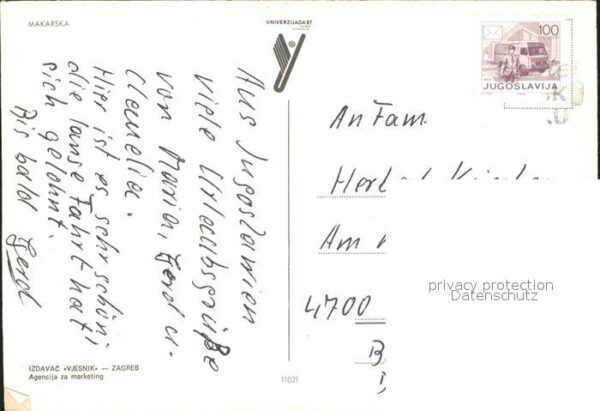 MAKARSKA
UNIVERZIJADA '87
100
JUGOSLAVIJA
Aus Jugoslawien
viele Urlaubsgrüße
von Maria, Gerd u.
Claudia.
Hier ist es sehr schön!
die lange Fahrt hat
sich gelohnt.
Bis bald Gerd
An Fam.
Am
4700
privacy protection
Datenschutz
IZDAVAČ «VJESNIK» — ZAGREB
Agencija za marketing
11021